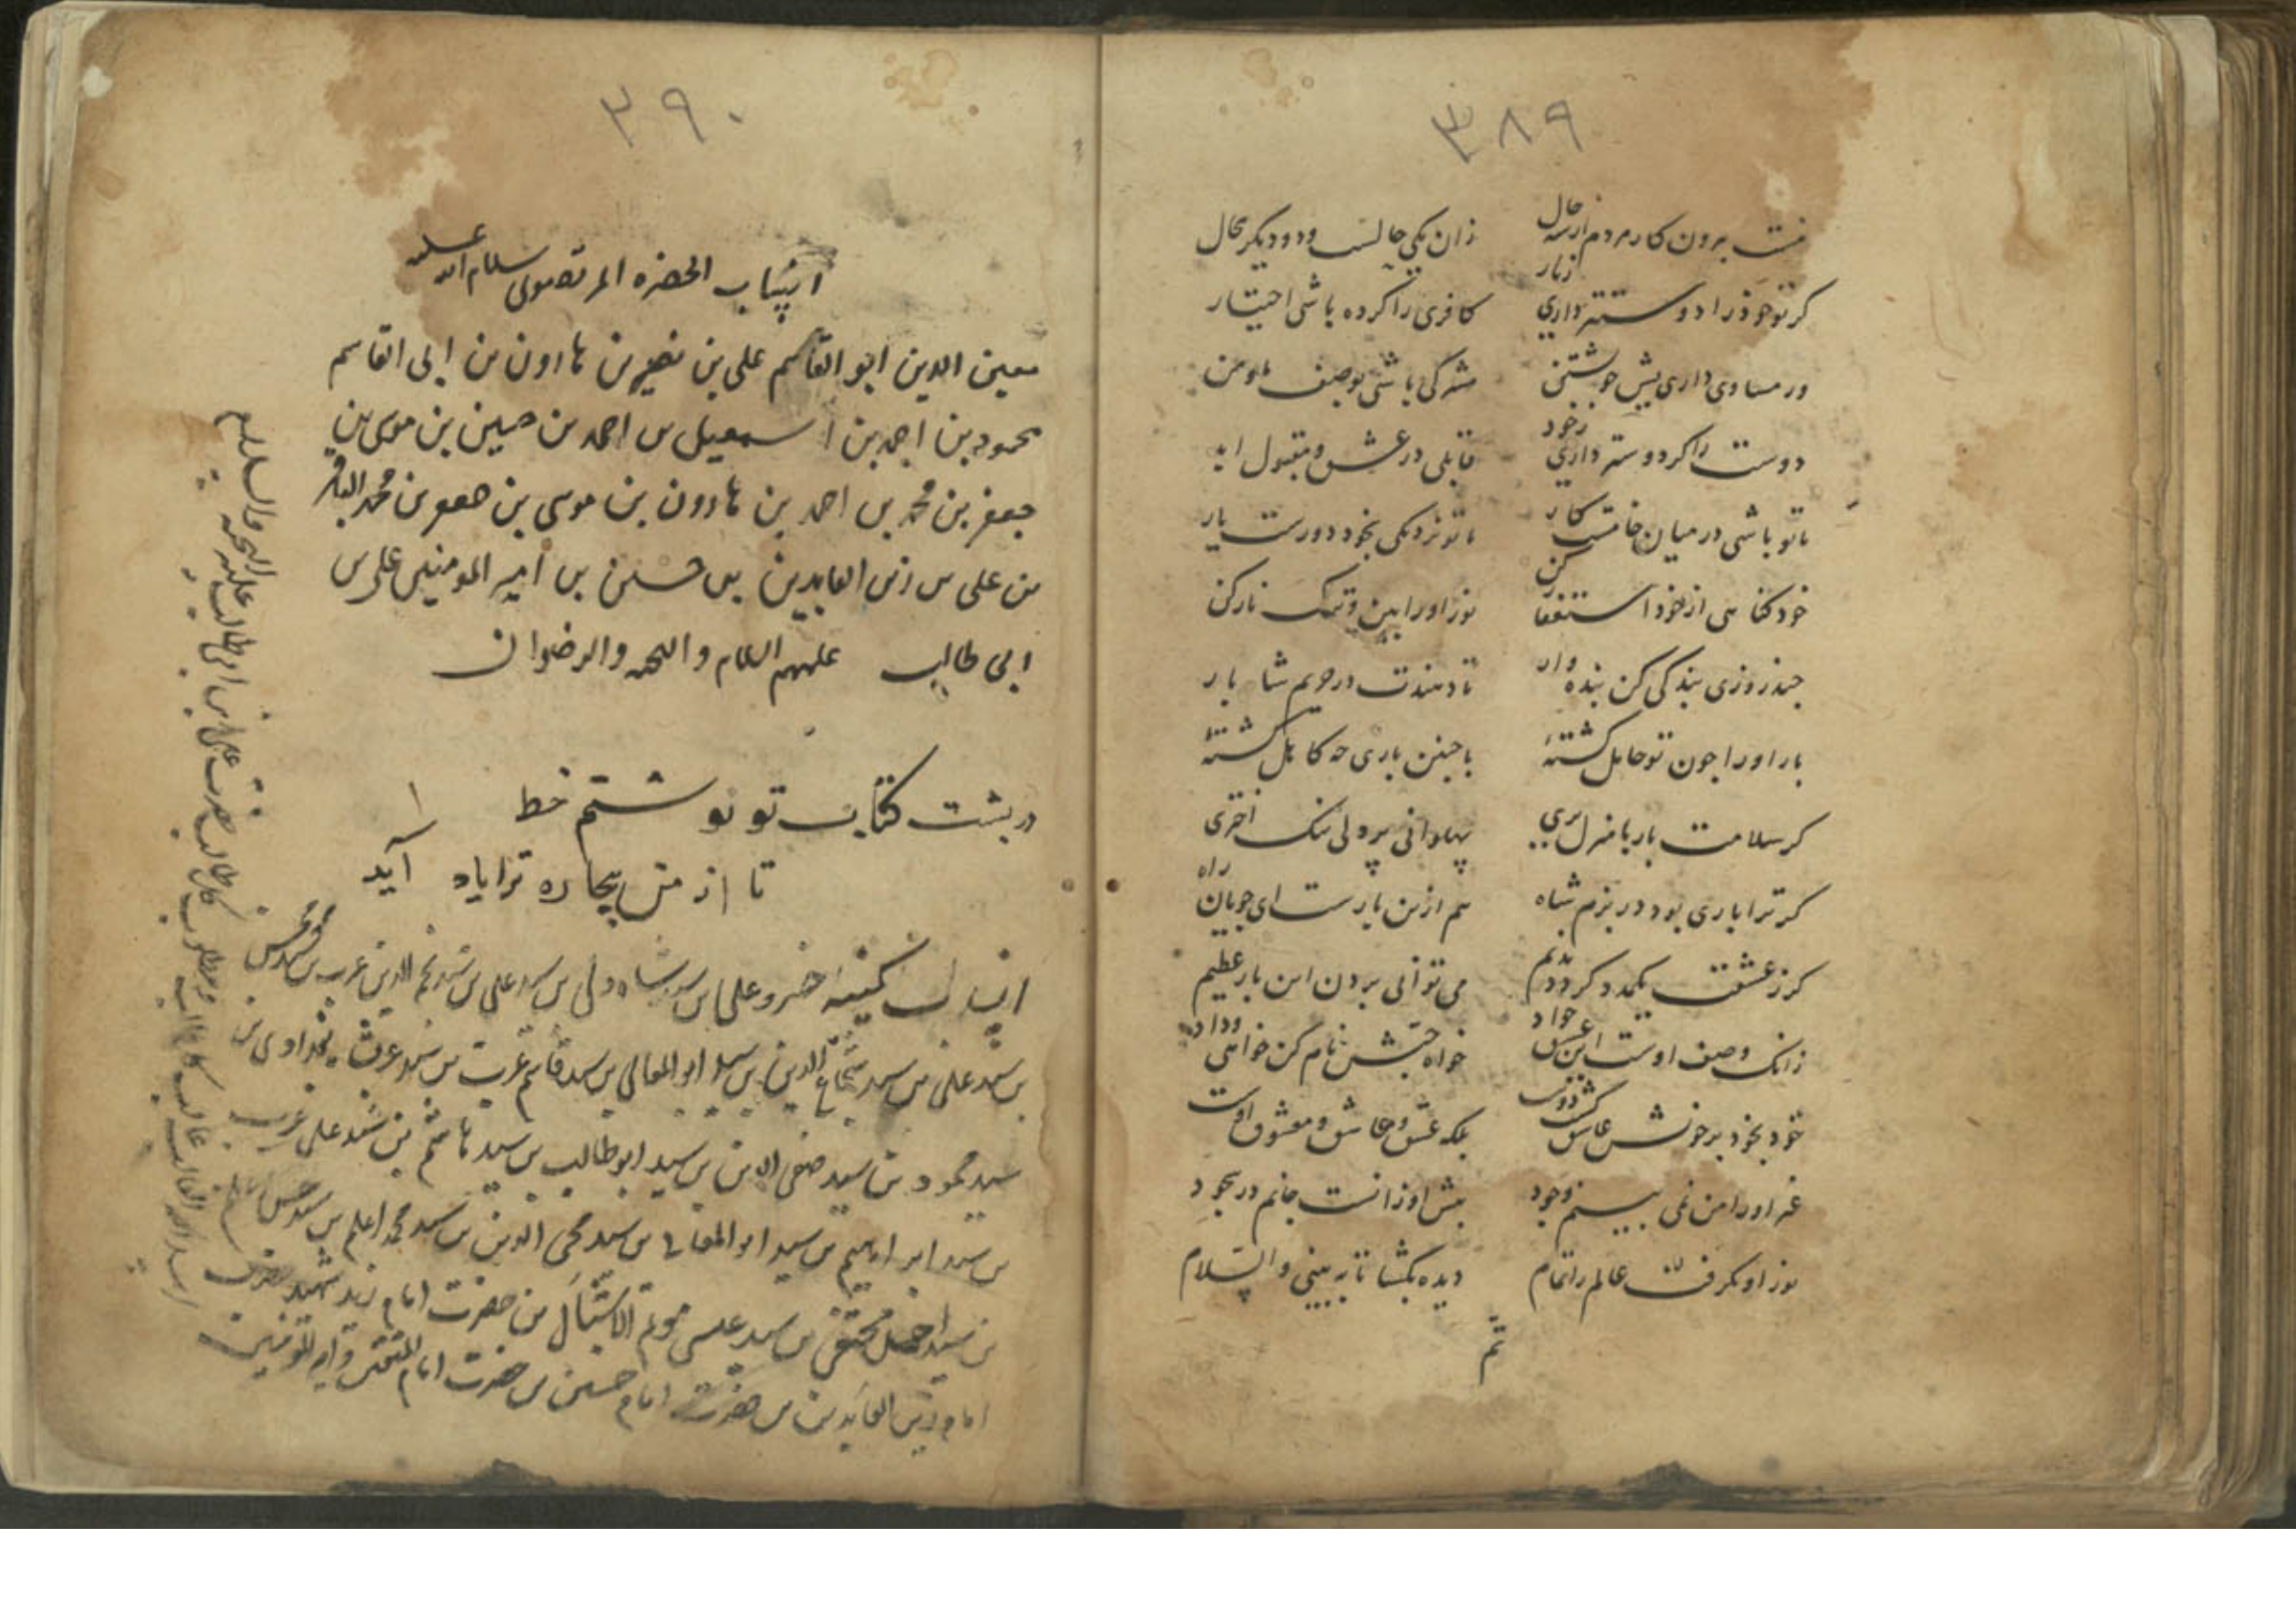 ۳۸۹
نیست برون کار مردم از سه حال زان یکی حالست و دو دیگر محال
گر تو خود را دوستر داری ز یار کافری را کرده باشی اختیار
ور مساوی داری پیش خویشتن مشرکی باشی بوصف ما و من
دوست را گر دوستر داری ز خود قابلی در عشق و مقبول ابد
تا تو باشی در میان خامست کار تا تو نزدیکی بخود دورست یار
خود گناهی از خود استغفار کن نور او را بین و ترک نار کن
چند روزی بندگی کن بنده وار تا دهندت در حریم شاه بار
بار او را چون تو حامل گشتهٔ با چنین باری چه کاهل گشتهٔ
گر سلامت بار با منزل بری پهلوانی پر دلی نیک اختری
گر ترا باری بود در بزم شاه هم ازین بارست ای جویان راه
گر ز عشقت یکمدد گردد ندیم می توانی بردن این بار عظیم
زانک وصف اوست این عشق جواد خواه حبش نام کن خواهی وداد
خود بخود بر خویش عاشق گشت دوست بلکه عشق و عاشق و معشوق اوست
غیر او را من نمی بینم وجود پیش او زانست جانم در سجود
نور او بگرفت عالم را تمام دیده بگشا تا به بینی والسلام
تم
۳۹۰
انتساب الحضره المرتضوی سلام الله علیه
معین الدین ابو القاسم علی بن نصیر بن هارون بن ابی القاسم
محمود بن احمد بن اسمعیل بن احمد بن حسین بن موسی بن
جعفر بن محمد بن احمد بن هارون بن موسی بن جعفر بن محمد الباقر
بن علی بن زین العابدین بن حسین بن امیر المومنین علی بن
ابی طالب علیهم السلام والتحیه والرضوان
در پشت کتاب تو نوشتم خط
تا از من بیچاره ترا یاد آید
انساب کمینه خسرو علی بن سید شاه ولی بن سید علی بن سید نجم الدین عرب بن سید
بن سید علی بن سید شجاع الدین بن سید ابو المعالی بن سید قاسم عرب بن سید
سید محمود بن سید صفی الدین بن سید ابو طالب بن سید هاشم بن سید علی عرب
بن سید ابراهیم بن سید ابو المعالی بن سید محی الدین بن سید محمد اعلم بن سید حسن
بن سید احمد مختفی بن سید عیسی موتم الاشبال بن حضرت امام زید شهید بن حضرت
امام زین العابدین بن حضرت امام حسین بن حضرت امام المتقین و امیر المومنین
اسد الله الغالب غالب کل غالب مطلوب کل طالب حضرت علی بن ابی طالب علیه التحیه والسلام